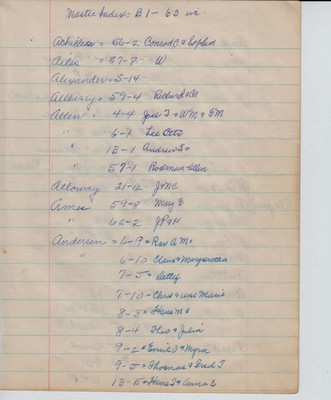 Master Index: B 1 - 63 inc
Achilles = 56-2 Conrad C & Sophia
Ailes = 37-8 W
Alexander = 5-14
Albury = 59-4 Richard &
Allen = 4-4 Jose T & Wm & EM
" 6-7 Lee Otto
" 12-1 Andrew J
" 57-1 Rodman Allen
Alloway 21-12 J & MC
Ames 59-8 Mary E
" 62-2 J P & H
Andersen = 6-9 = Rev A M
" 6-10 Claus & Margaretha
7-5 = Betty
7-10 - Chris & Ane Marie
8-3 = Hans M
8-4 Theo & Julia
9-2 = Emil O & Myra
9-5 = Thomas & Fred T
13-5 = Hans J & Anna C